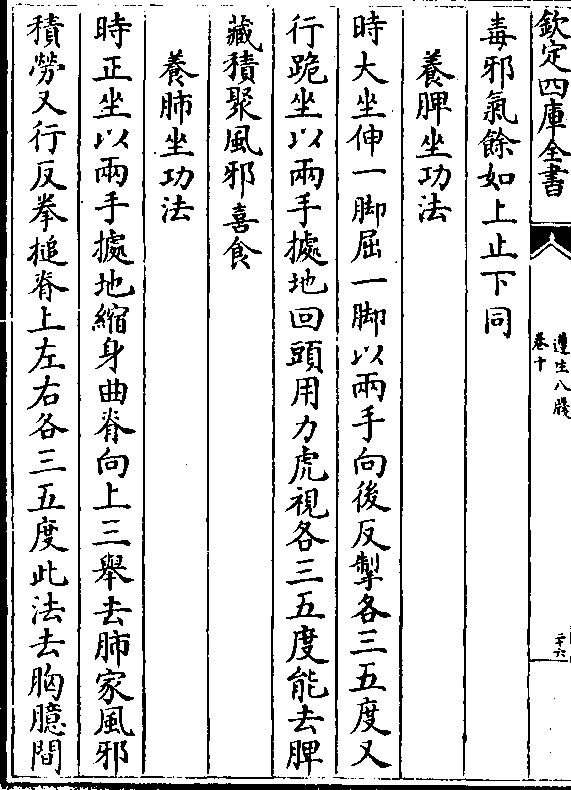 欽定四庫全書
遵生八牋
卷十
毒邪氣餘如上止下同
養脾坐功法
時大坐伸一脚屈一脚以兩手向後反掣各三五度又
行跪坐以兩手據地回頭用力虎視各三五度能去脾
藏積聚風邪喜食
養肺坐功法
時正坐以兩手據地縮身曲脊向上三舉去肺家風邪
積勞又行反拳搥脊上左右各三五度此法去胸臆間